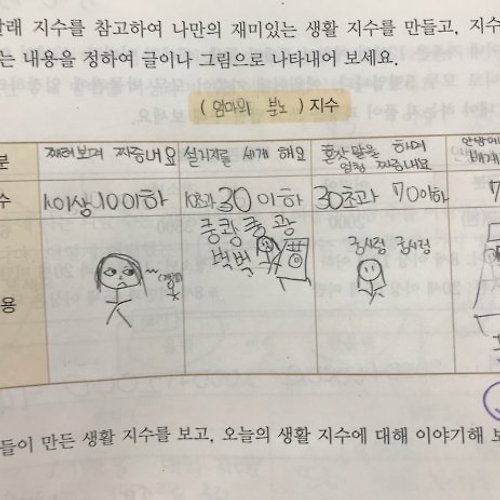 래 지수를 참고하여 나만의 재미있는 생활 지수를 만들고, 지수
는 내용을 정하여 글이나 그림으로 나타내어 보세요.
( 엄마의 분노 ) 지수
분 째려보며 짜증내요 설거지를 세게 해요 혼잣말을 하며 엄청 짜증내요
수 1이상 10이하 10초과 30이하 30초과 70이하 7
용 쿵쾅쿵쾅 벅벅 궁시렁 궁시렁
들이 만든 생활 지수를 보고, 오늘의 생활 지수에 대해 이야기해 보